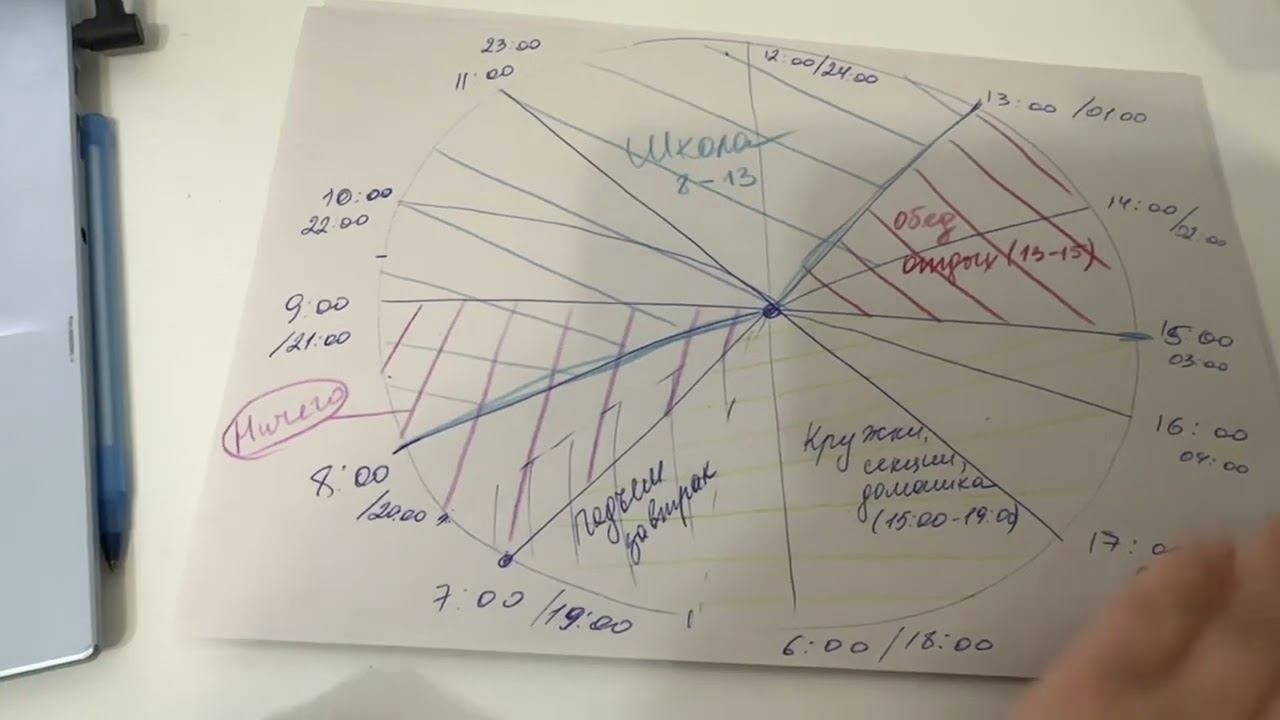 23:00
11:00
12:00/24:00
13:00 /01:00
Школа
8-13
10:00
22:00
обед
отдых (13-15)
14:00/02:00
9:00
/21:00
15 00
03:00
Ничего
Кружки,
секции,
домашка
(15:00-19:00)
16:00
04:00
8:00
/20:00
Подъем
завтрак
17:
7:00/19:00
6:00/18:00